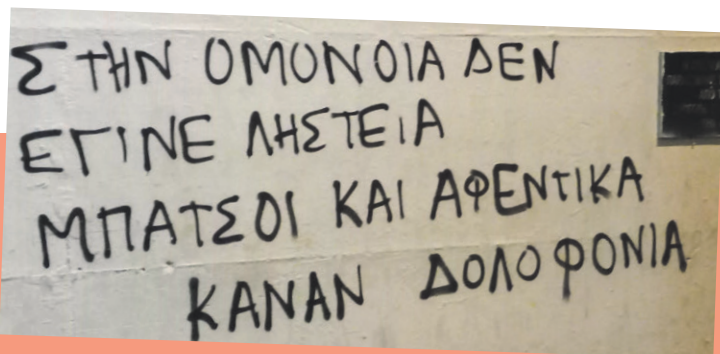 ΣΤΗΝ ΟΜΟΝΟΙΑ ΔΕΝ
ΕΓΙΝΕ ΛΗΣΤΕΙΑ
ΜΠΑΤΣΟΙ ΚΑΙ ΑΦΕΝΤΙΚΑ
ΚΑΝΑΝ ΔΟΛΟΦΟΝΙΑ